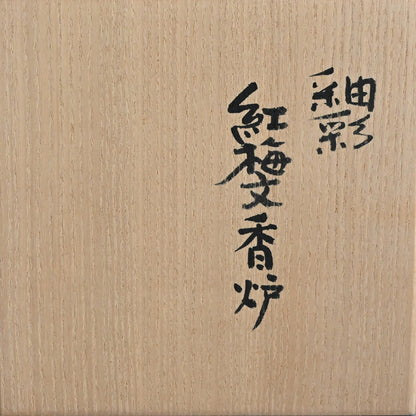 釉彩
紅梅文香炉